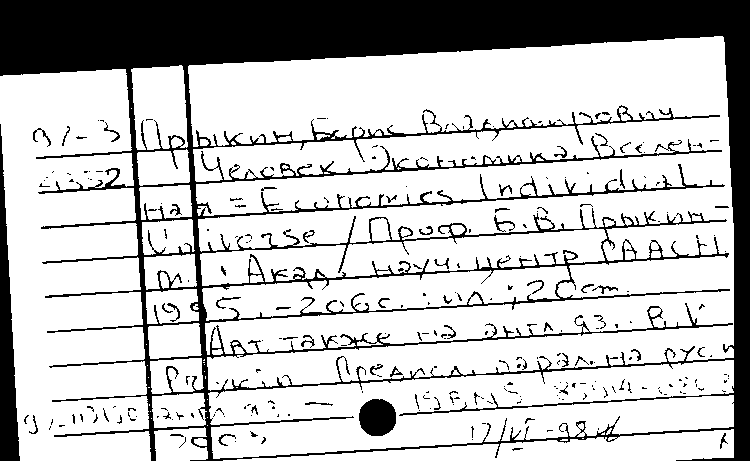 9/-3 Прыкин, Борис Владимирович
4352 Человек. Экономика. Вселен=
ная = Economics. Individual.
Universe / Проф. Б.В. Прыкин -
М. : Акад. науч. центр РААСН,
1995. - 206с. : ил. ; 20см.
Авт. также на англ. яз.: B.V
Prykin Предисл. парал. на рус. и
англ. яз. — ISBN5
17/VI-98